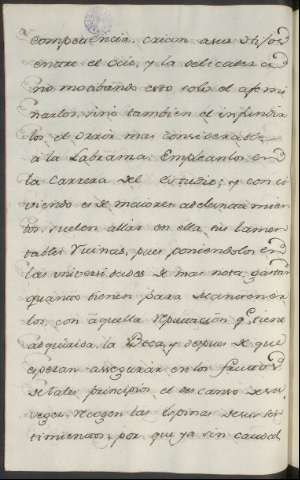 competencia, crian a sus hijos
entre el ocio, y la delicadeza
no acabando esto solo el afemi
narlos, sino también el infundir
los el error mas considerable
a la Labranza. Emplean los en
la Carrera del Estudio; y con ci
viendo es de maiores adelantamien
tos, suelen allar en ella sus lamen
tables Ruinas, pues poniendolos en
las universidades de mas nota, gastan
quanto tienen para mantener
los, con aquella reputacion q.e tiene
adquirida la Beca, y despues de que
esperan asegurar en los frutos
de tales principios el descanso de su
vegez, recogen las espinas de su sen
timiento, por que ya sin caudal